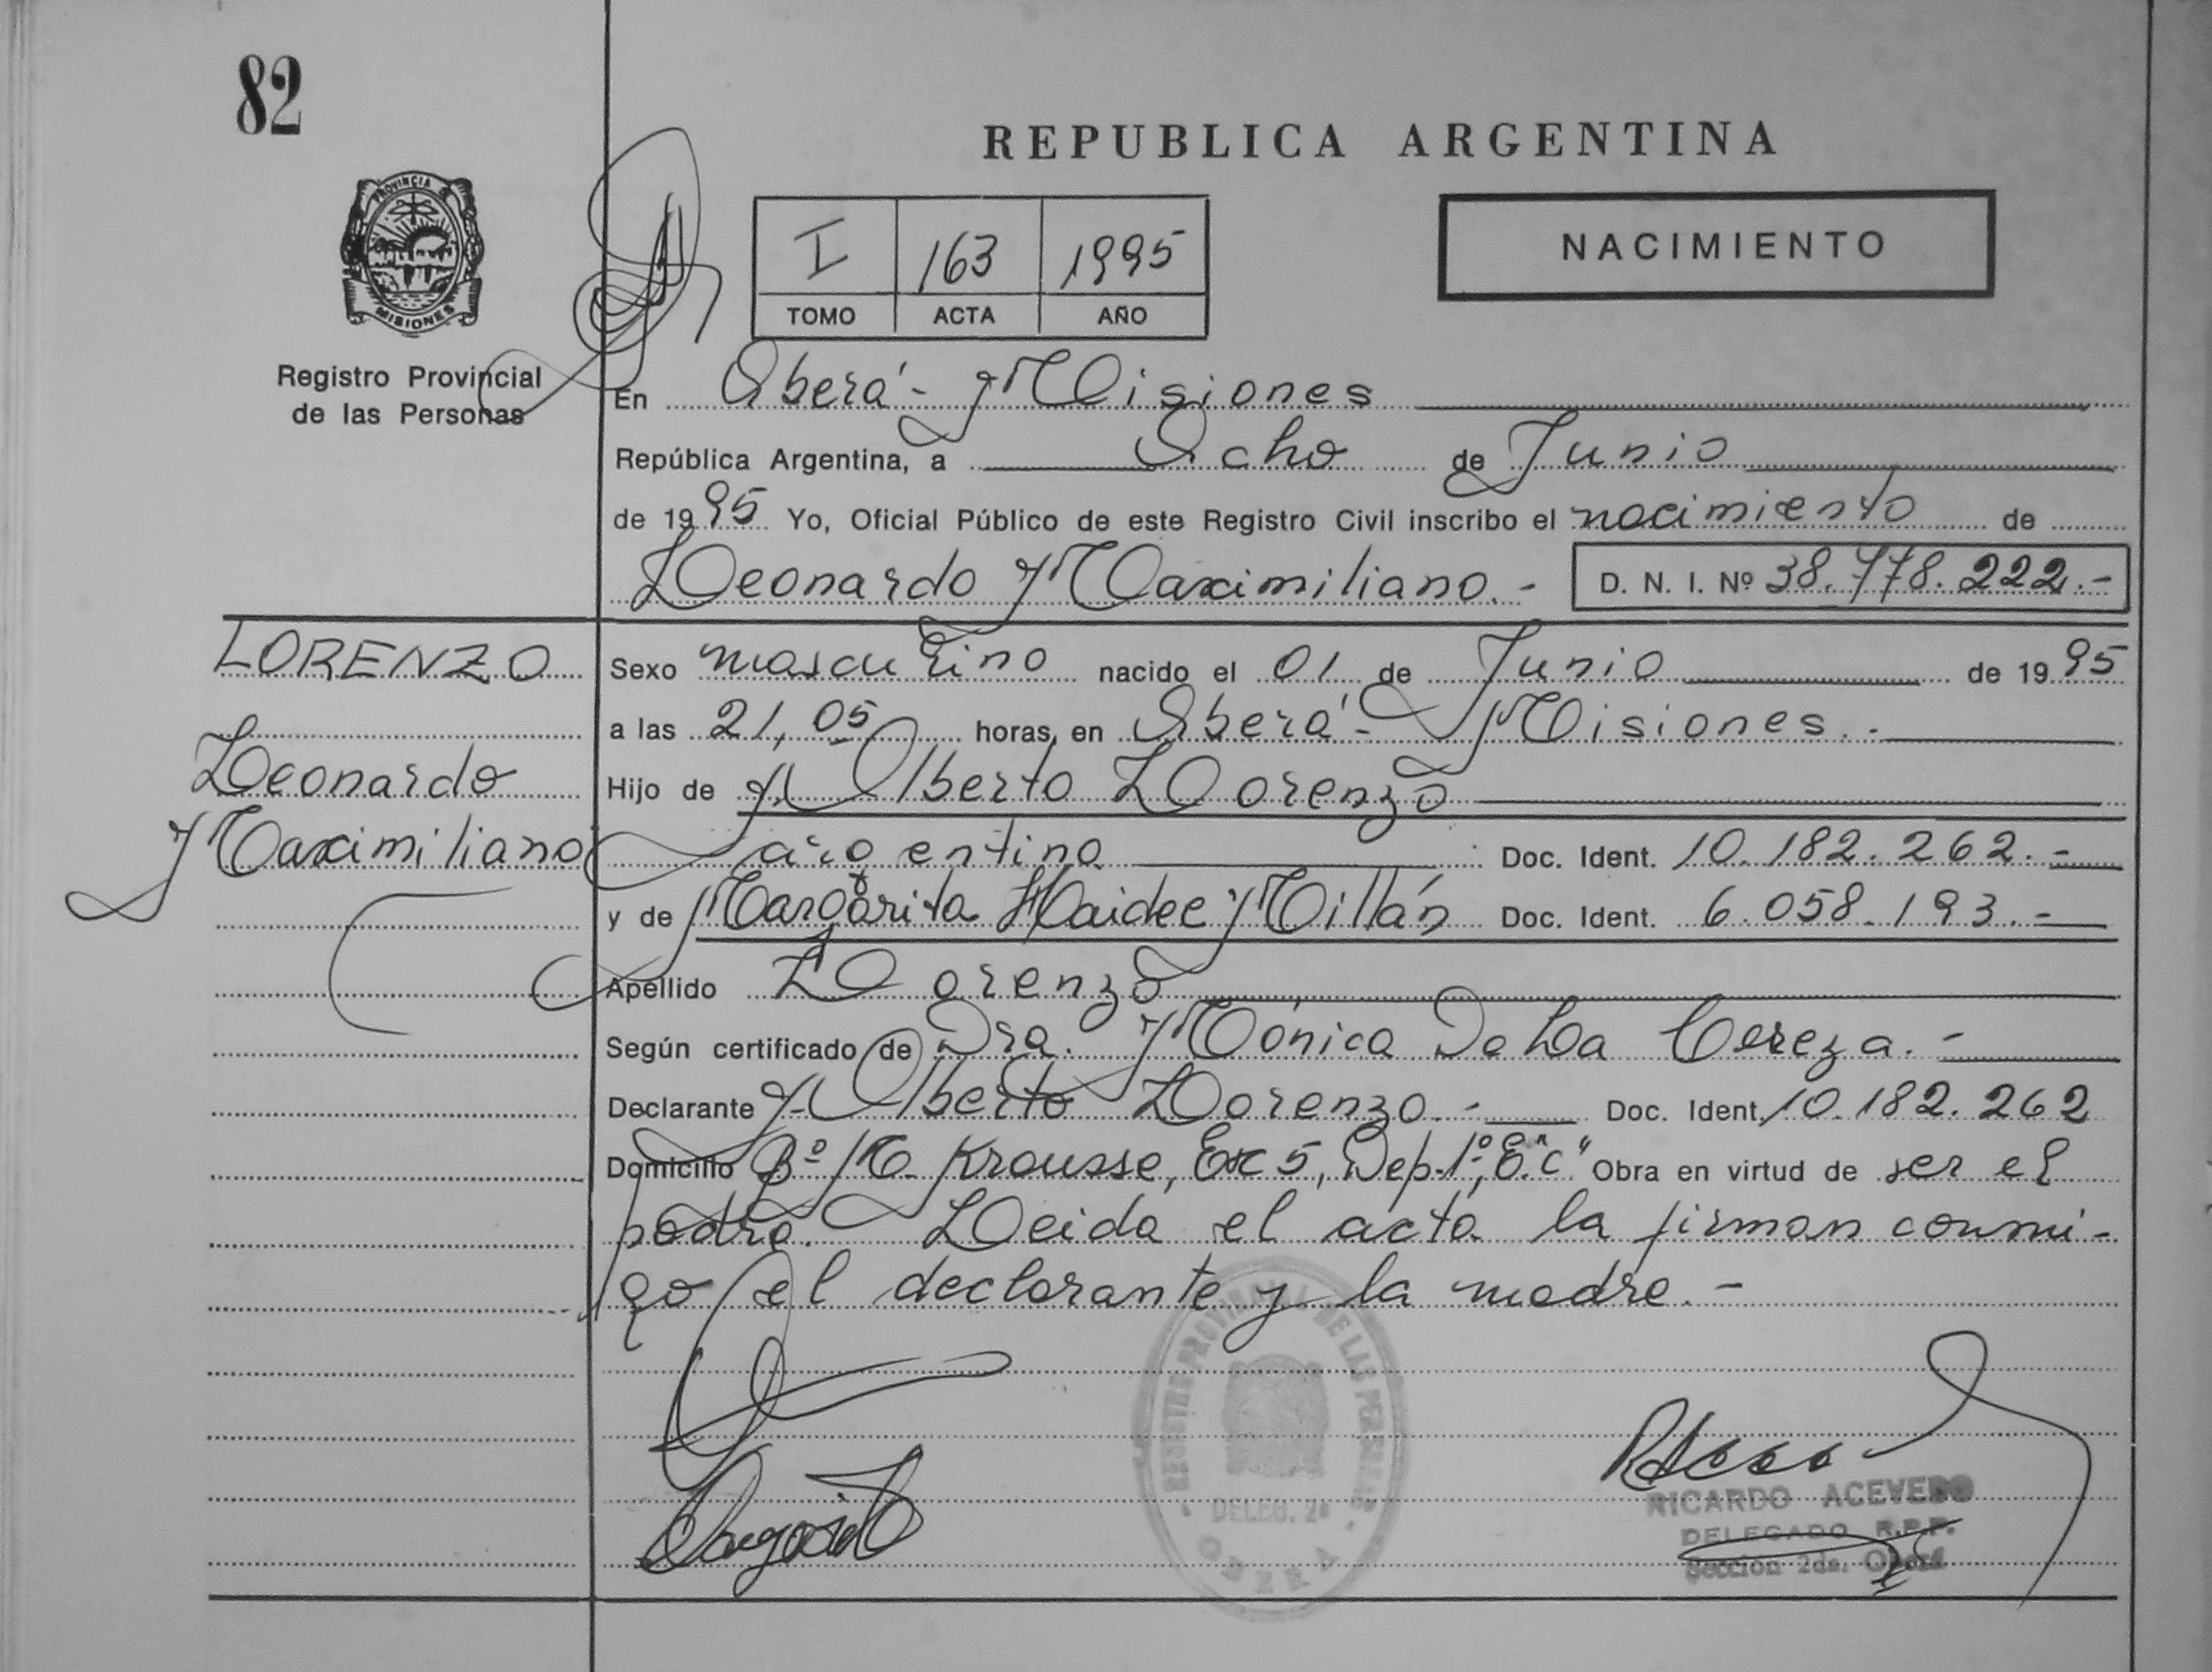 82
REPUBLICA ARGENTINA
PROVINCIA DE
MISIONES
I 163 1995
TOMO ACTA AÑO
NACIMIENTO
Registro Provincial
de las Personas
En Oberá - Misiones
República Argentina, a Ocho de Junio
de 1995 Yo, Oficial Público de este Registro Civil inscribo el nacimiento de
Leonardo Maximiliano.- D. N. I. Nº 38.778.222.-
LORENZO
Leonardo
Maximiliano
Sexo masculino nacido el 01 de Junio de 1995
a las 21,05 horas, en Oberá - Misiones.-
Hijo de Alberto Lorenzo
argentino Doc. Ident. 10.182.262.-
y de Margarita Haidee Millán Doc. Ident. 6.058.193.-
Apellido Lorenzo
Según certificado de Dra. Mónica De La Cereza.-
Declarante Alberto Lorenzo.- Doc. Ident. 10.182.262
Domicilio Bº Krausse, 5, Dep. 1º, "C" Obra en virtud de ser el
padre. Leida el acta la firman conmi-
go el declarante y la madre.-
REGISTRO PROVINCIAL DE LAS PERSONAS
DELEG. 2ª
OBERA
RICARDO ACEVEDO
DELEGADO R.P.P.
Sección 2da. Oberá